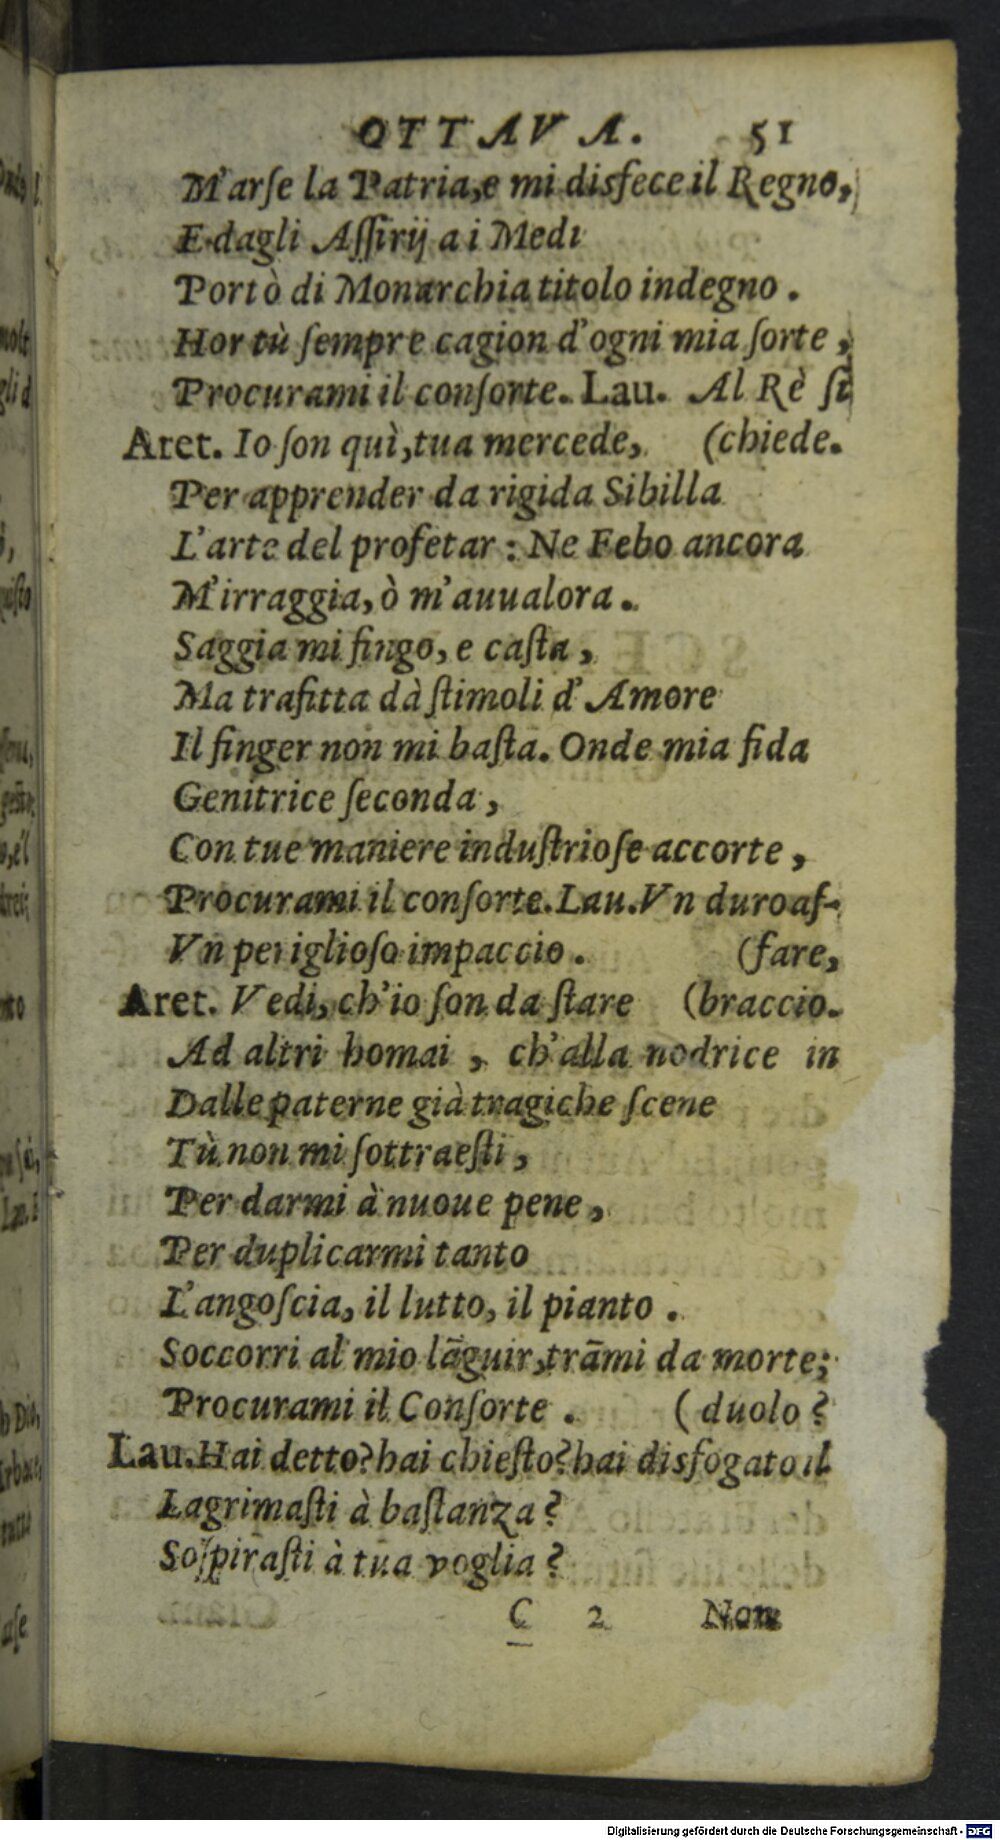 OTTAVA. 51
M'arſe la Patria, e mi disfece il Regno,
E dagli Aſſirij a i Medi
Portò di Monarchia titolo indegno.
Hor tù ſempre cagion d'ogni mia ſorte,
Procurami il conſorte. Lau. Al Rè ſi
Aret. Io ſon quì, tua mercede, (chiede.
Per apprender da rigida Sibilla
L'arte del profetar: Ne Febo ancora
M'irraggia, ò m'auualora.
Saggia mi fingo, e caſta,
Ma trafitta dà ſtimoli d'Amore
Il finger non mi baſta. Onde mia fida
Genitrice ſeconda,
Con tue maniere induſtrioſe accorte,
Procurami il conſorte. Lau. Vn duro af-
Vn periglioſo impaccio. (fare,
Aret. Vedi, ch'io ſon da ſtare (braccio.
Ad altri homai, ch'alla nodrice in
Dalle paterne già tragiche ſcene
Tù non mi ſottraeſti,
Per darmi à nuoue pene,
Per duplicarmi tanto
L'angoſcia, il lutto, il pianto.
Soccorri al mio lãguir, trãmi da morte;
Procurami il Conſorte. (duolo?
Lau. Hai detto? hai chieſto? hai disfogato il
Lagrimaſti à baſtanza?
Soſpiraſti à tua voglia?
C 2 Non
Digitalisierung gefördert durch die Deutsche Forschungsgemeinschaft - DFG